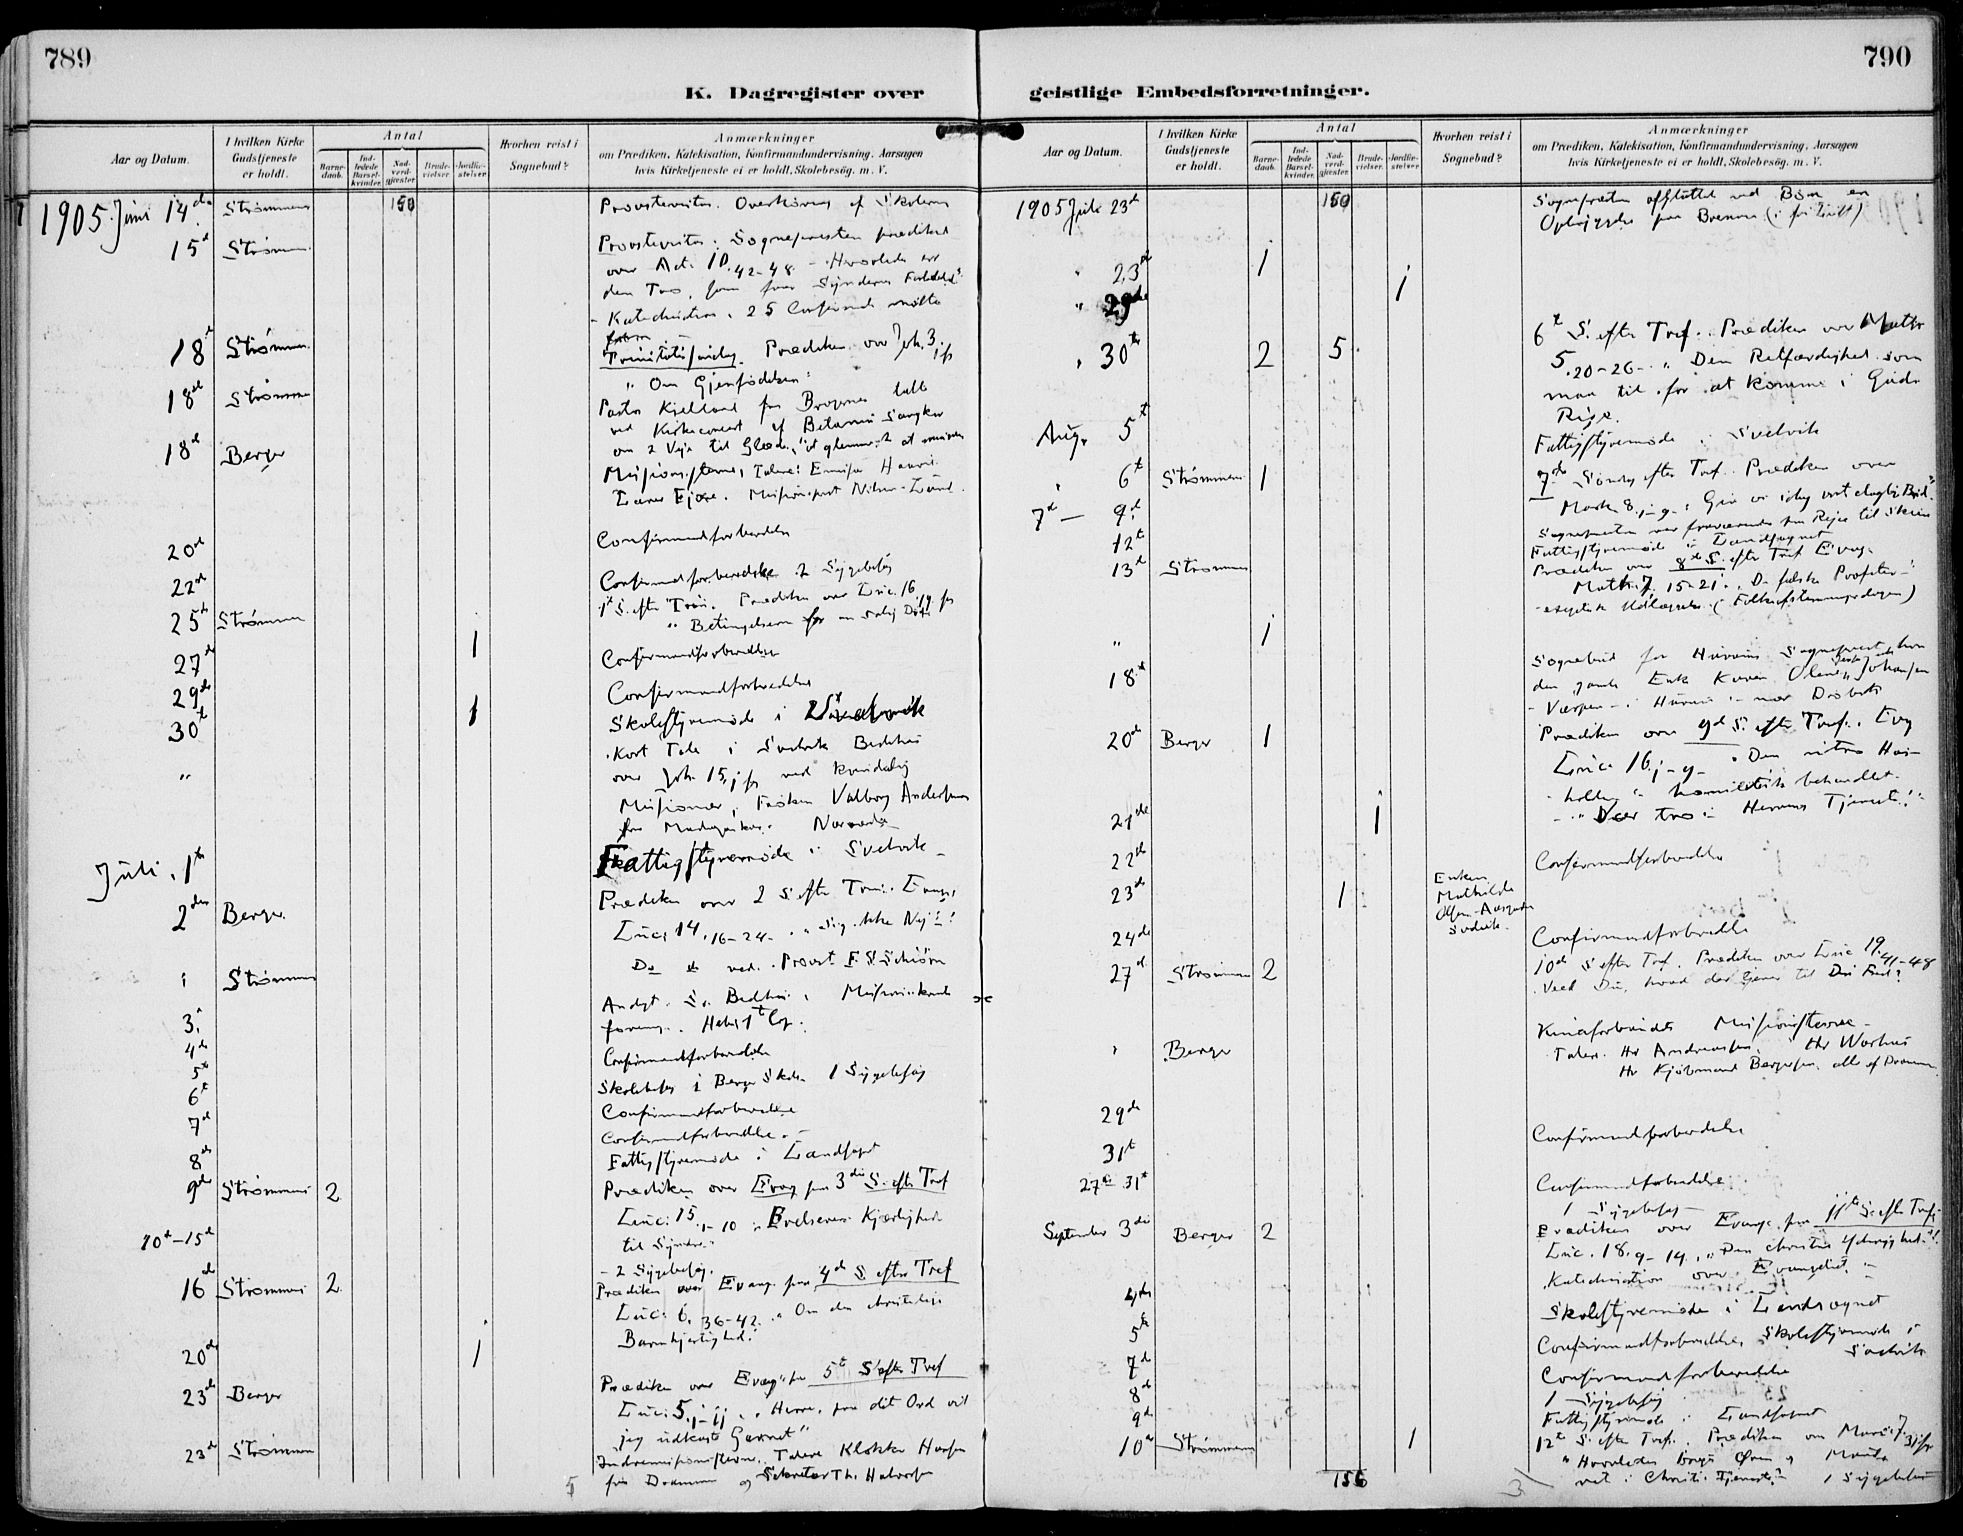 789
K. Dagregister over
Aar og Datum.
I hvilken Kirke Gudstjeneste er holdt.
Antal
Barnedaab.
Indledede Barselkvinder.
Nadverdgjester.
Brudevielser.
Jordfæstelser
Hvorhen reist i Sognebud?
Anmærkninger
om Prædiken, Katekisation, Konfirmandundervisning. Aarsagen
hvis Kirketjeneste ei er holdt, Skolebesög. m. V.
1905 Juni 14de Strømmen 150 Provstevisitas. Overhøring af Skolerne
15d Strømm Provstevisitas. Sognepresten prædiked
over Act. 10.42-48. Hvorledes er
den Tro, som faar Syndernes Forladelse
- Katechisation. 25 Confirmand mødte
18t Strømmen. Trinitatissøndag. Prædiken over Joh. 3.1 fs
"Om Gjenfødelsen"
18d Strømmen Pastor Kielland fra Bragernes talte
ved Kirkeconcert af Betania Sangkor
om 2 Veje til Glæde, at glemme & at mindes
18d Berger Missionsstevne, Talere: Emissær
Missionsprest Nilsen-Lund.
20d Confirmandforberedelse
22d Confirmandforberedelse 2 Sygebesøg
25t Strømmen 1t S. efter Trin. Prædiken over Luc. 16.19 fs
"Betingelserne for en salig Død"
27de 1 Confirmandforberedelse
29de Confirmandforberedelse
30t 1 Skolestyremøde i Svelvik
" Kort Tale i Svelvik Bedehus
over Joh. 15,1 fs ved kvindelig
Missionær, Frøken Valborg Andersen
fra Madagaskar.
Juli, 1t Fattigstyremøde i Svelvik
2den Berger. Prædiken over 2 S efter Trin. Evang.
Luc. 14.16-24. "Sig ikke Nej"!
" Strømmen Do do ved Provst F. S. Schiørn
3. Andgt. Sv. Bedhus i Missionskvinde
forening. Hebr 1t Cap.
4de Confirmandforberedelse
5t Skolebesøg i Berger Skole 1 Sygebesøg
6t Confirmandforberedelse
7d Confirmandforberedelse.
8de Fattigstyremøde i Landsognet
9de Strømmen 2 Prædiken over Evang fra 3die S. efter Tref
Luc: 15.1-10 Frelserens Kjærlighed
til Syndere"
10d-15d - 2 Sygebesøg.
16de Strømmen 2 Prædiken over Evang. fra 4d S efter Tref
Luc: 6.36-42. "Om den christelige
Barmhjertighed."
20de 1
23de Berger Prædiken over Evang. fra 5t S efter Tref
Luc: 5.1-11. "Herre, paa dit Ord vil
jeg udkaste Garnet"
23de Strømmen Indremissionsstevne. Talere Klokker Hansen
fra Drammen og Sekretær Th. Halvorsen
790
geistlige Embedsforretninger.
Aar og Datum.
I hvilken Kirke Gudstjeneste er holdt.
Antal
Barnedaab.
Indledede Barselkvinder.
Nadverdgjester.
Brudevielser.
Jordfæstelser
Hvorhen reist i Sognebud?
Anmærkninger
om Prædiken, Katekisation, Konfirmandundervisning, Aarsagen
hvis Kirketjeneste ei er holdt, Skolebesög. m. V.
1905 Juli 23d 150 Sognepresten afsluttet med Bøn en
Opbyggelse paa Brenna (i fri Luft)
" 23de 1
" 29de 1
" 30te 2 5 6t S. efter Tref. Prædiken over Matth
5.20-26. "Den Retfærdighed som
man til for at komme i Guds
Rige.
Aug. 5t Fattigstyremøde i Svelvik
" 6t Strømmen 1 7de Søndag efter Tref. Prædiken over
Mark 8.1-9. Giv os idag vort daglig Brød"
7d - 9d Sognepresten var fraværende paa Rejse til Skien
12te Fattigstyremøde i Landsognet
13d Strømmen Prædiken over 8de S. efter Tref Evang.
Matth. 7. 15-21. De falske Profeter -
(Folkeafstemningsdagen)
" 1
18t Sognebud for Hurums Sogneprest hos
den gamle Enke Karen Oline Johansen
i Hurum
20de Berger 1 Prædiken over 9d S. efter Tref. Evg
Luc. 16.1-9. "Den utro Hus-
holder" homiletisk behandlet.
"Vær tro i Herrens Tjeneste!"
21de 1
22de Confirmandforberedelse
23de 1 Enken
Mathilde
Olsen
Svelvik.
24de Confirmandforberedelse
27d Strømmen 2 10de S efter Tref. Prædiken over Luc 19.41-48
Veed Du, hvad der tjener til Din Fred?
" Berger Kinaforbundets Missionsstevne.
Talere. Hr Andreassen, Hr Warhus
Hr Kjøbmand Bergersen, alle af Drammen
29de Confirmandforberedelse
31t Confirmandforberedelse
27de-31t 1 Sygebesøg
September 3die Berger 2 Prædiken over Evang. fra 11te S. efter Tref.
Luc. 18.9-14. "Den christne Ydmyghed"!
Katechisation over Evangeliet.
4de Skolestyremøde i Landsognet
5te Confirmandforberedelse, Skolestyremøde i
Svelvik
7d Confirmandforberedelse
8de 1 Sygebesøg
9de Fattigstyremøde i Landsognet
10de Strømmen 1 12te S. efter Tref. Prædiken om Marc. 7.31 fs
"Hvorledes bruge Øren og Mund
ret i Christi Tjeneste? 1 Sygebesøg
155